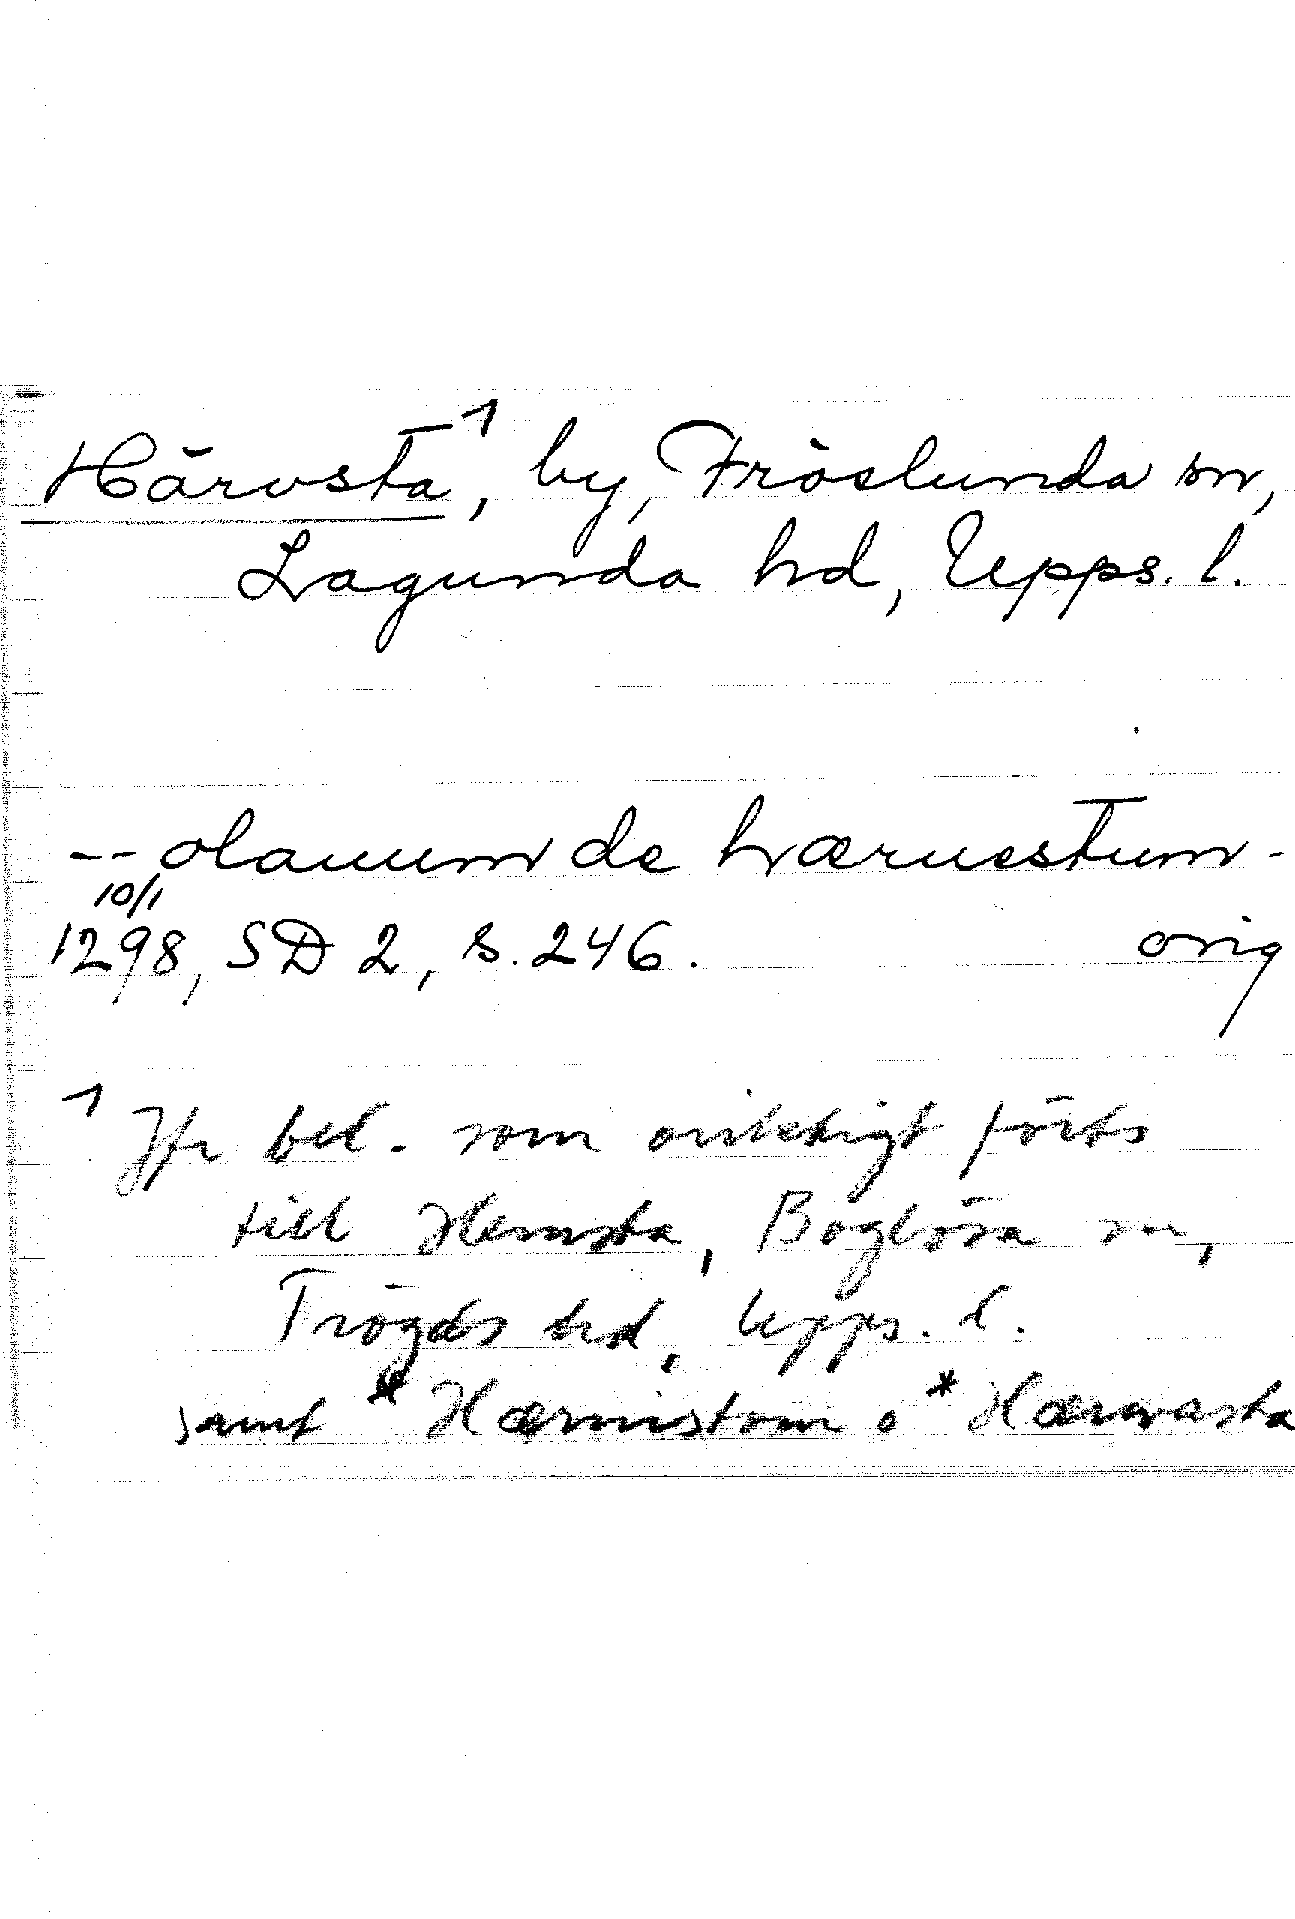 Härvsta¹, by, Fröslunda sn,
Lagunda hd, Upps. l.
-- olauum de hæruestum -
10/1
1298, SD 2, s. 246. orig
¹ Jfr bel. som oriktigt förts
till Hemsta, Boglösa sn,
Trögds hd, Upps. l.
samt *Hærnistom o *Hærvasta